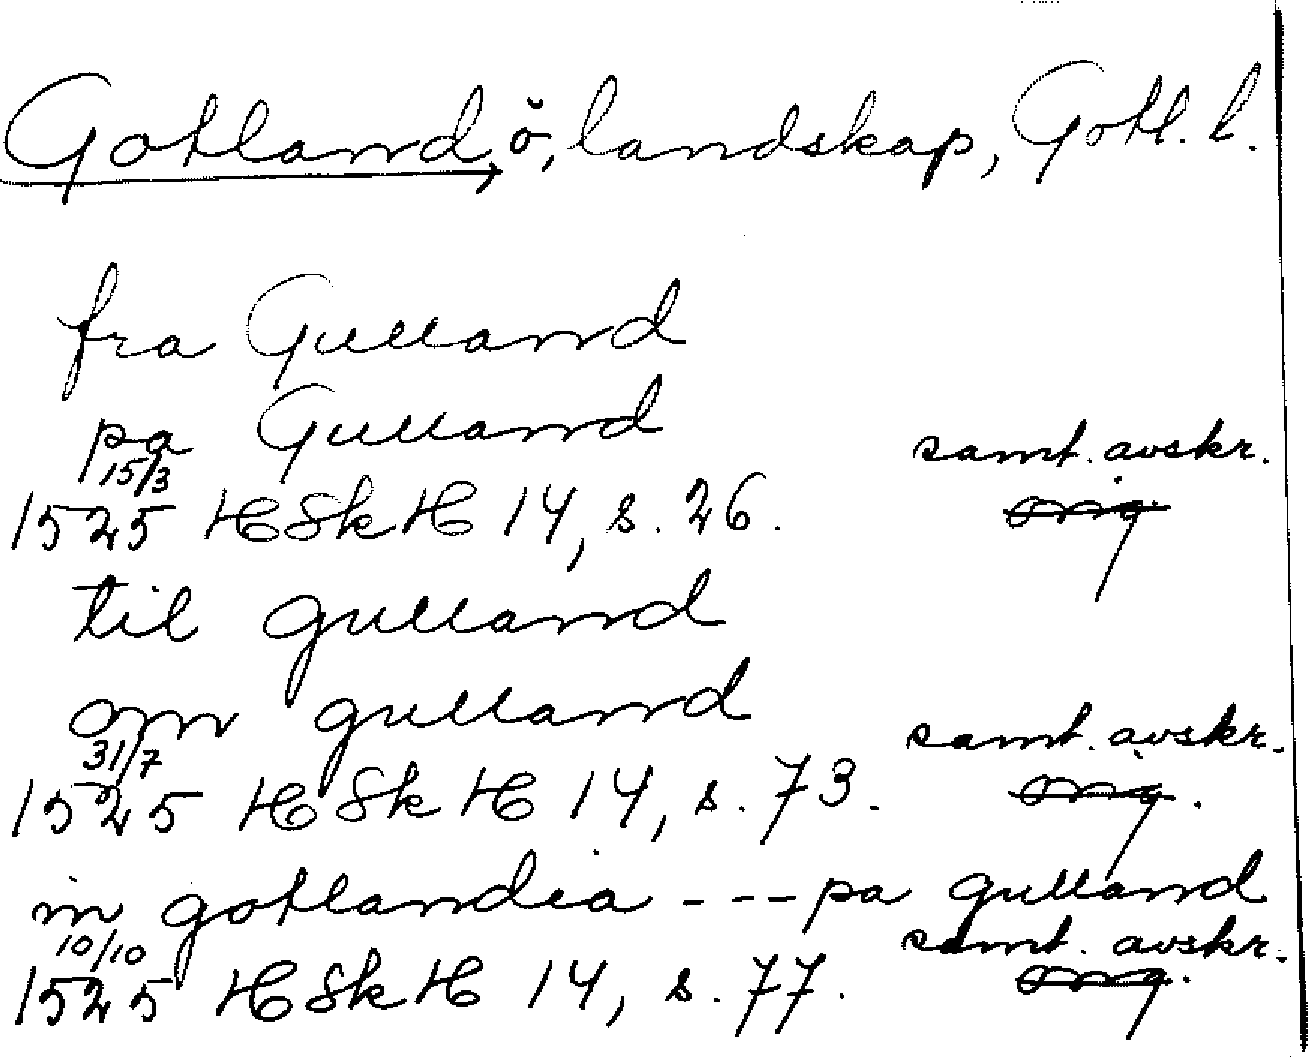 Gotland, ö, landskap, Gotl. l.
fra Gulland
pa Gulland
samt. avskr.
15/3
1525 HSkH 14, s. 26.
orig
til gulland
om gulland
samt. avskr.
31/7
1525 HSkH 14, s. 73.
orig.
in gotlandia --- pa gulland
samt. avskr.
10/10
1525 HSkH 14, s. 77.
orig.